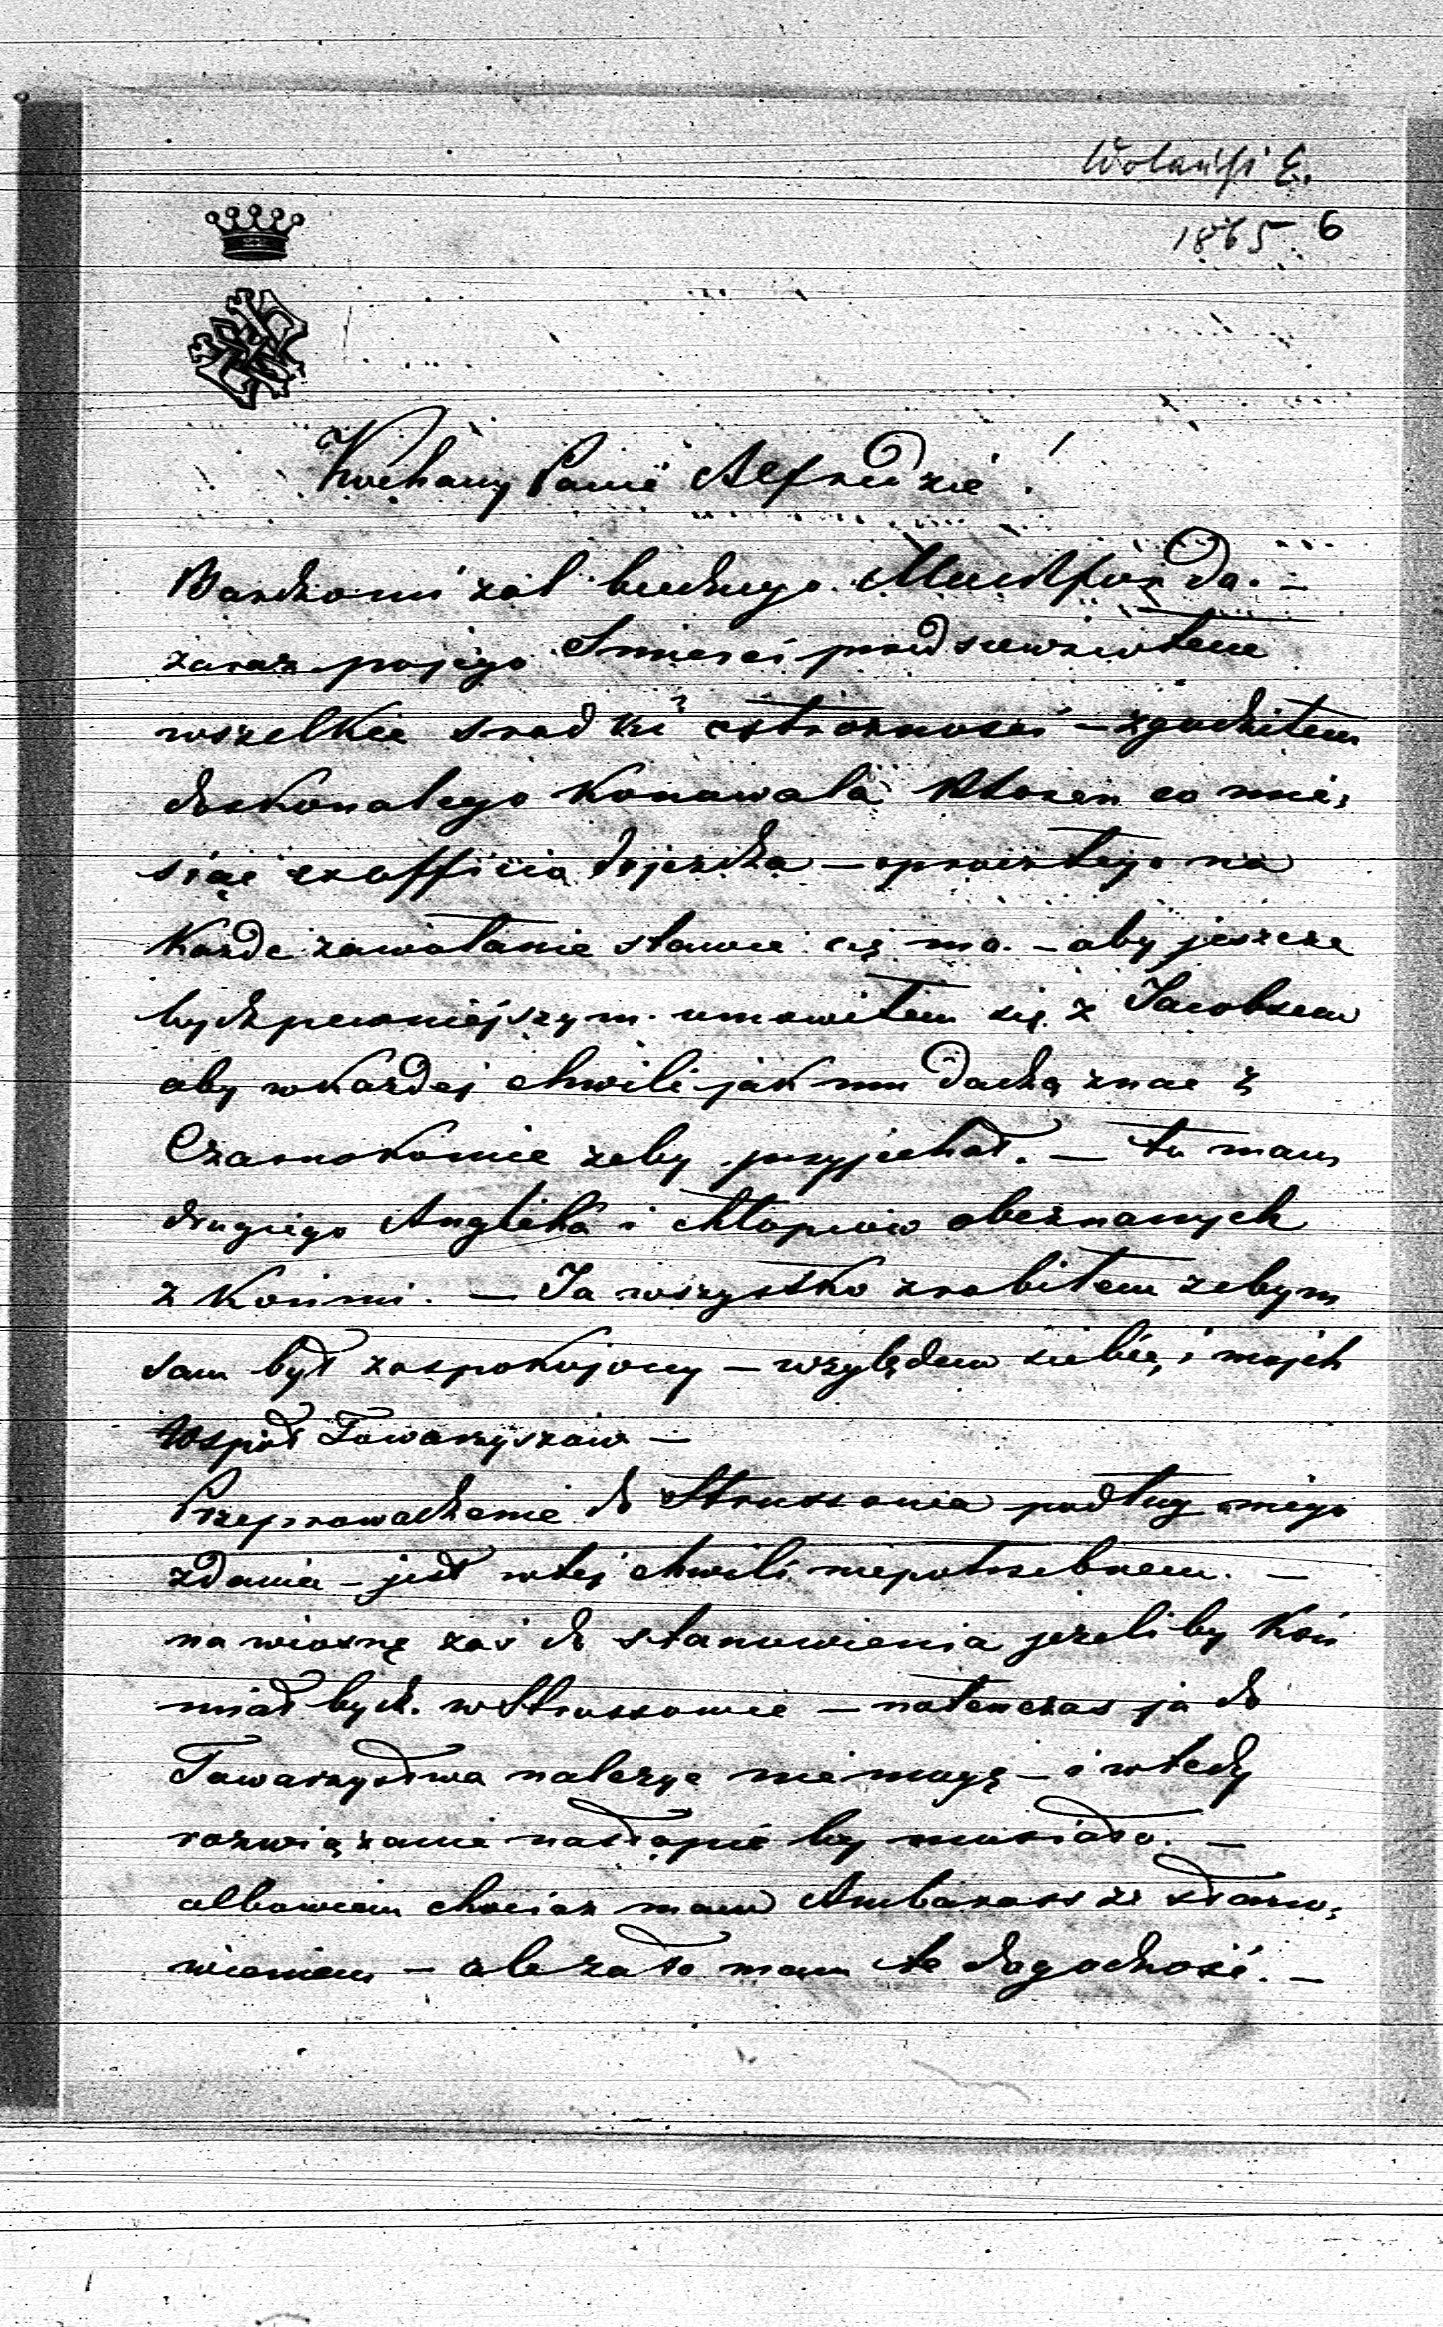 Wolański E.
1865. 6
Kochany Panie Alfredzie!
Bardzo mi żal biednego –
zaraz po jego Smierci przedsiewziołem
wszelkie srodki ostrożnosci – zgodziłem
doskonałego Konowała Ktoren co mie,
siąc exofficio dojezdza – oprocz tego na
Kazde zawołanie stawic się ma. – aby jeszcze
bydz pewniejszym. umowiłem się z Jacobsem
aby w kazdej chwili jak mu dadzą znac z
Czarnokonic zeby przyjechał. – tu mam
drugiego Anglika i chłopcow obeznanych
z Konmi. – Ja wszystko zrobiłem zebym
sam był zaspokojony – względem siebie i mojch
Wspoł Towarzyszow –
Przeprowadzenie do Strussowa podług mego
zdania – jest w tej chwili niepotrzebnem. –
na wiosnę zaś do stanowienia jezeliby Koń
miał bydz. w Strussowie – natenczas ja do
Towarzystwa nalezyc nie mogę – i wtedy
rozwiązanie nastąpic by musiało. –
albowiem chociaz mam Ambarass ze stano,
wieniem – ale za to mam te dogodność. –